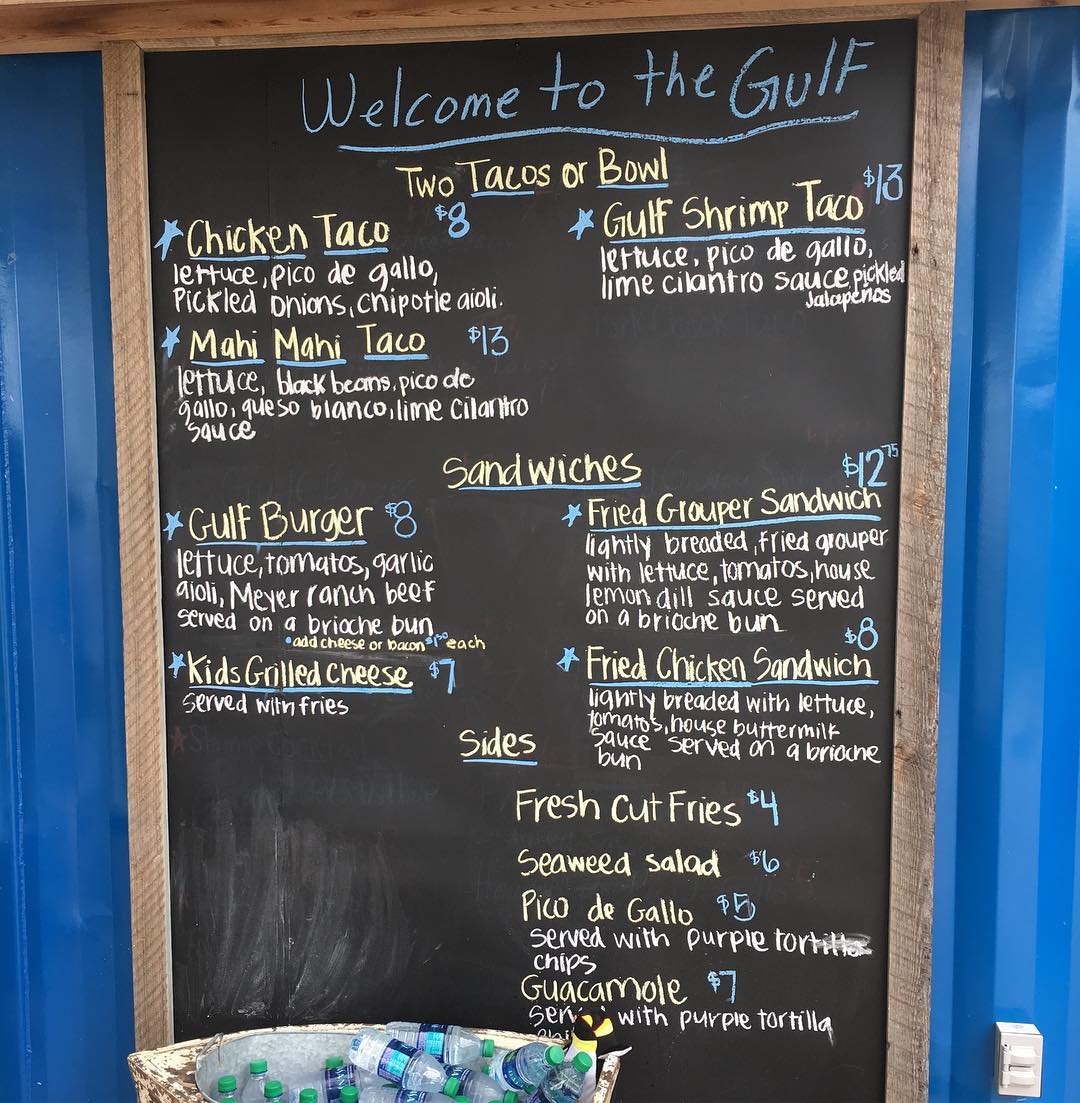 Welcome to the Gulf
Two Tacos or Bowl
Chicken Taco $8
lettuce, pico de gallo,
Pickled Onions, chipotle aioli.
Mahi Mahi Taco $13
lettuce, black beans, pico de
gallo, queso blanco, lime cilantro
sauce
Gulf Shrimp Taco $13
lettuce, pico de gallo,
lime cilantro sauce, pickled
Jalapeños
Sandwiches
Gulf Burger $8
lettuce, tomatos, garlic
aioli, Meyer ranch beef
served on a brioche bun
add cheese or bacon $1.50 each
Kids Grilled Cheese $7
served with fries
Fried Grouper Sandwich $12.75
lightly breaded, fried grouper
with lettuce, tomatos, house
lemon dill sauce served
on a brioche bun
Fried Chicken Sandwich $8
lightly breaded with lettuce,
tomatos, house buttermilk
sauce served on a brioche
bun
Sides
Fresh Cut Fries $4
Seaweed salad $6
Pico de Gallo $5
served with purple tortilla
chips
Guacamole $7
served with purple tortilla